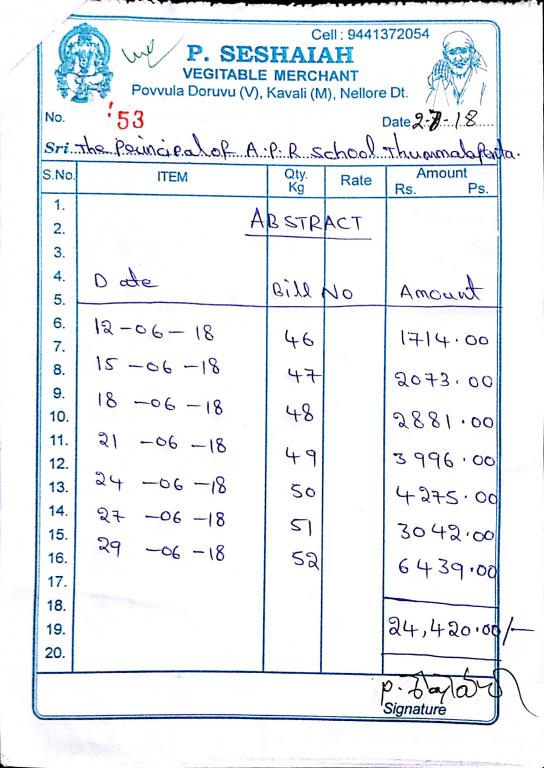 Cell : 9441372054
P. SESHAIAH
VEGITABLE MERCHANT
Povvula Doruvu (V), Kavali (M), Nellore Dt.
No. 53 Date 2-7-18
Sri. The Principal of A.P.R School Thummalapenta.
S.No. ITEM Qty. Kg Rate Amount Rs. Ps.
1.
2. ABSTRACT
3.
4. Date Bill No Amount
5.
6. 12-06-18 46 1714.00
7.
8. 15-06-18 47 2073.00
9. 18-06-18 48 2881.00
10.
11. 21-06-18 49 3996.00
12.
13. 24-06-18 50 4275.00
14. 27-06-18 51 3042.00
15.
16. 29-06-18 52 6439.00
17.
18.
19. 24,420.00/-
20.
Signature